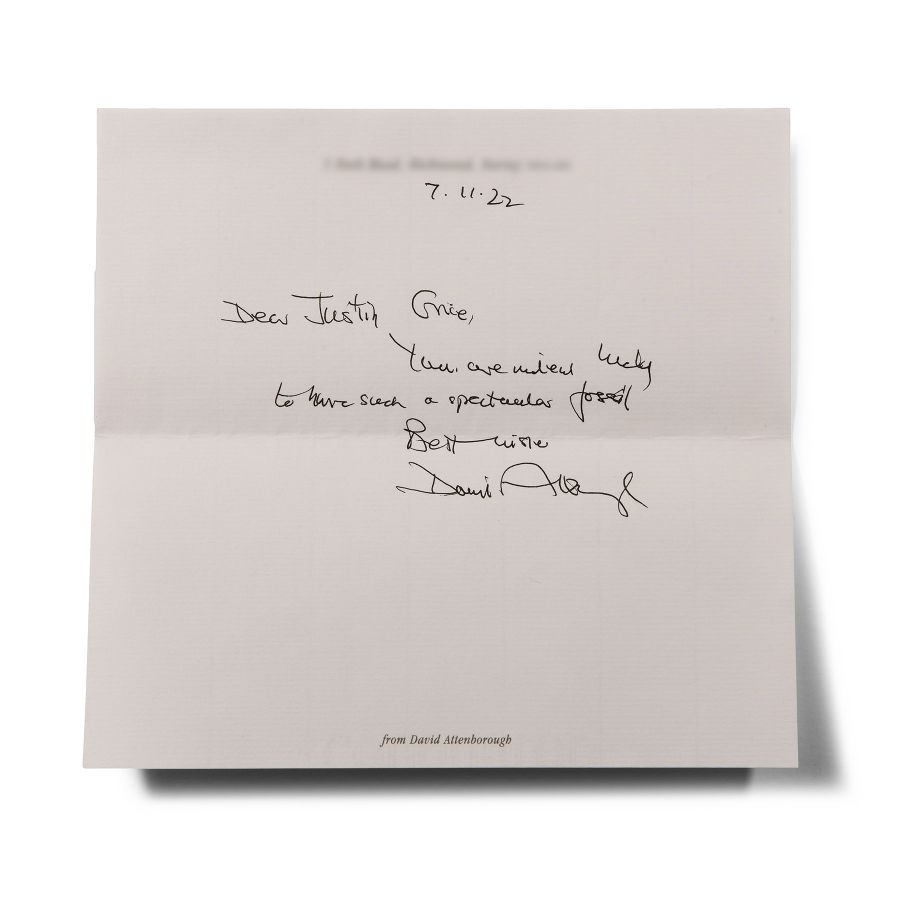 7.11.22
Dear Justin Grice,
You are indeed lucky
to have such a spectacular fossil
Best wishes
David Attenborough
from David Attenborough